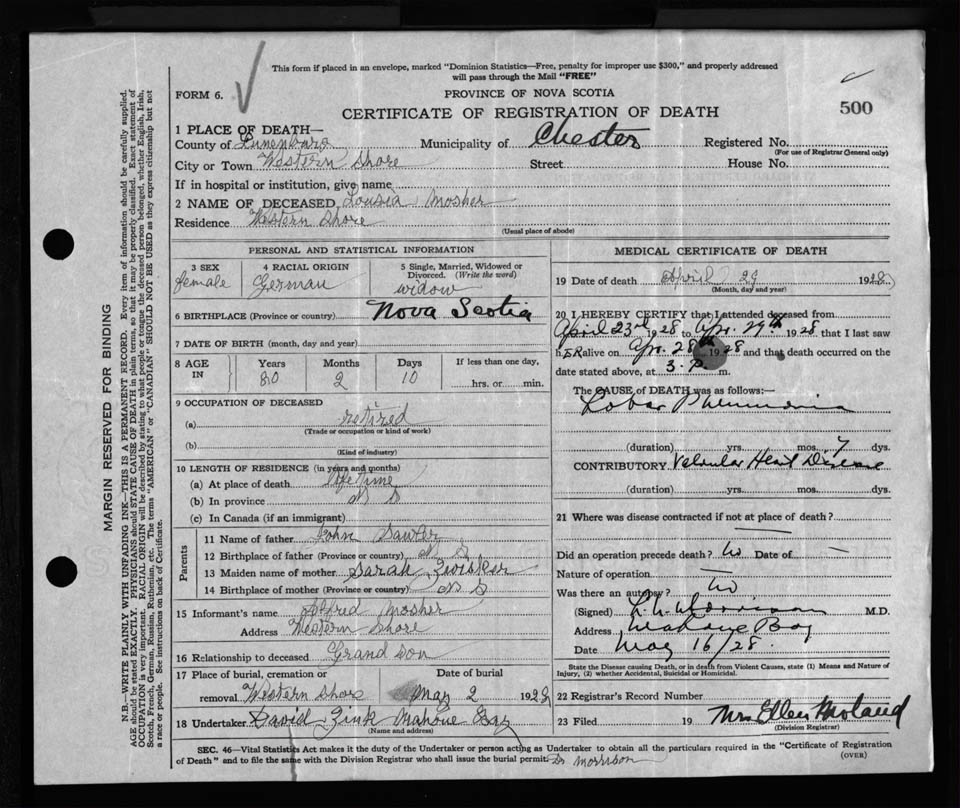 This form if placed in an envelope, marked "Dominion Statistics—Free, penalty for improper use $300," and properly addressed
will pass through the Mail "FREE"
FORM 6.
PROVINCE OF NOVA SCOTIA
500
CERTIFICATE OF REGISTRATION OF DEATH
1 PLACE OF DEATH—
County of Lunenburg Municipality of Chester Registered No.
(For use of Registrar General only)
City or Town Western Shore Street House No.
If in hospital or institution, give name
2 NAME OF DECEASED Lousia Mosher
Residence Western Shore
(Usual place of abode)
PERSONAL AND STATISTICAL INFORMATION
3 SEX female
4 RACIAL ORIGIN German
5 Single, Married, Widowed or Divorced. (Write the word) widow
6 BIRTHPLACE (Province or country) Nova Scotia
7 DATE OF BIRTH (month, day and year)
8 AGE IN Years 80 Months 2 Days 10 If less than one day, hrs. or min.
9 OCCUPATION OF DECEASED
(a) retired
(Trade or occupation or kind of work)
(b)
(Kind of industry)
10 LENGTH OF RESIDENCE (in years and months)
(a) At place of death life time
(b) In province N S
(c) In Canada (if an immigrant)
Parents
11 Name of father John Sawler
12 Birthplace of father (Province or country) N S
13 Maiden name of mother Sarah Zwicker
14 Birthplace of mother (Province or country) N S
15 Informant's name Mosher
Address Western Shore
16 Relationship to deceased Grand Son
17 Place of burial, cremation or Date of burial
removal Western Shore May 2 1928
18 Undertaker David Zink Mahone Bay
(Name and address)
MEDICAL CERTIFICATE OF DEATH
19 Date of death April 29 1928
(Month, day and year)
20 I HEREBY CERTIFY that I attended deceased from
April 23rd 1928 to Apr. 29th 1928 that I last saw
hER alive on Apr. 28th 1928 and that death occurred on the
date stated above, at 3. P m.
The CAUSE of DEATH was as follows:—
Lobar Pneumonia
(duration) yrs. mos. 7 dys.
CONTRIBUTORY Valvular Heart Disease
(duration) yrs. mos. dys.
21 Where was disease contracted if not at place of death?
Did an operation precede death? No Date of —
Nature of operation
Was there an autopsy? No
(Signed) Morrison M.D.
Address Mahone Bay
Date May 16/28.
State the Disease causing Death, or in death from Violent Causes, state (1) Means and Nature of
Injury, (2) whether Accidental, Suicidal or Homicidal.
22 Registrar's Record Number
23 Filed 19 Mrs Ellen
(Division Registrar)
SEC. 46—Vital Statistics Act makes it the duty of the Undertaker or person acting as Undertaker to obtain all the particulars required in the "Certificate of Registration
of Death" and to file the same with the Division Registrar who shall issue the burial permit. Dr Morrison
(OVER)
MARGIN RESERVED FOR BINDING
N.B.—WRITE PLAINLY WITH UNFADING INK—THIS IS A PERMANENT RECORD. Every item of information should be carefully supplied.
AGE should be stated EXACTLY. PHYSICIANS should STATE CAUSE OF DEATH in plain terms, so that it may be properly classified. Exact statement of
OCCUPATION is very important. RACIAL ORIGIN will be described by stating to what people or tongue the deceased person belonged, whether English, Irish,
Scotch, French, German, Russian, Ruthenian, etc. The terms "AMERICAN" or "CANADIAN" SHOULD NOT BE USED as they express citizenship but not
a race or people. See instructions on back of Certificate.